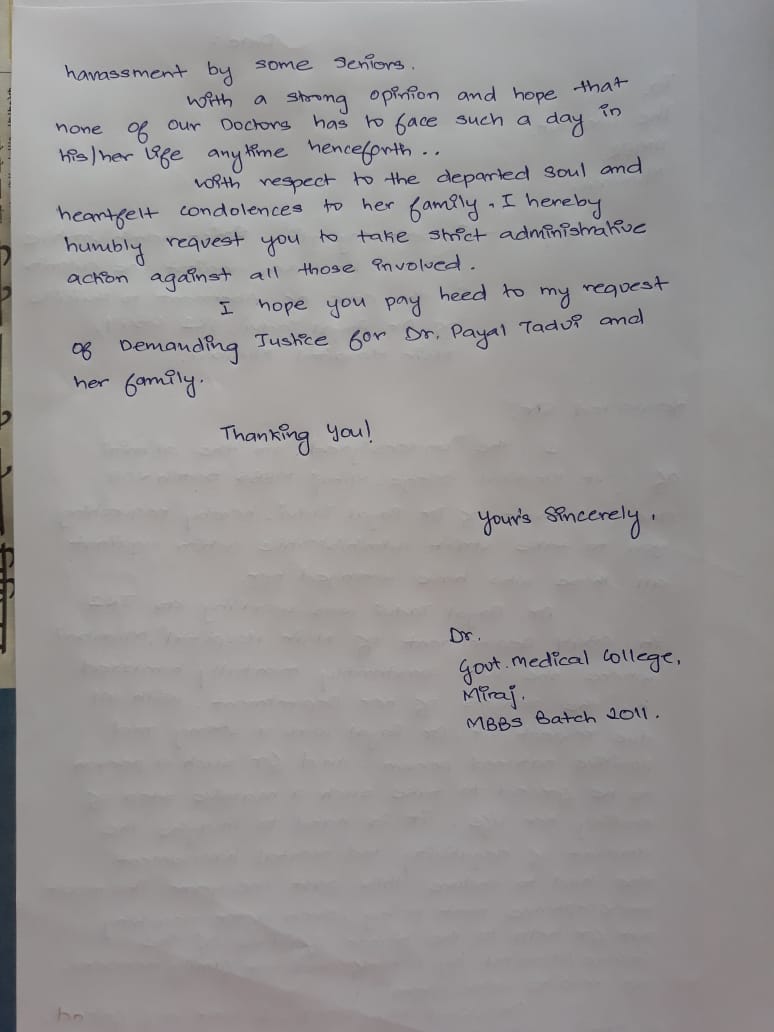 harassment by some seniors.
With a strong opinion and hope that
none of our Doctors has to face such a day in
his/her life anytime henceforth ..
With respect to the departed soul and
heartfelt condolences to her family, I hereby
humbly request you to take strict administrative
action against all those involved.
I hope you pay heed to my request
of Demanding Justice for Dr. Payal Tadvi and
her family.
Thanking you!
Your's Sincerely,
Dr.
Govt. Medical College,
Miraj.
MBBS Batch 2011.